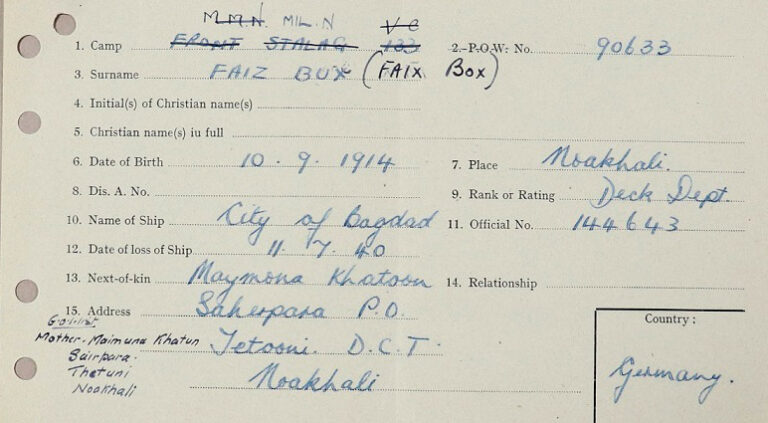 M.M.N. MIL.N V C
1. Camp FRONT STALAG 133 2.-P.O.W: No. 90633
3. Surname FAIZ BUX (FAIX Box)
4. Initial(s) of Christian name(s)
5. Christian name(s) iu full
6. Date of Birth 10. 9. 1914 7. Place Noakhali.
8. Dis. A. No. 9. Rank or Rating Deck Dept.
10. Name of Ship City of Bagdad 11. Official No. 144643
12. Date of loss of Ship 11. 7. 40
13. Next-of-kin Maymona Khatoon 14. Relationship
15. Address Saherpara P.O.
Mother. Maimuna Khatun Jetooni. D.C.T.
Sairpara.
Thetuni Noakhali
Noakhali
Country :
Germany.